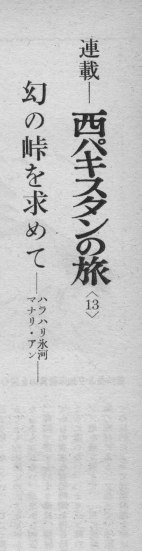 連載—西パキスタンの旅〈13〉
幻の峠を求めて——ハラハリ氷河——
マナリ・アン